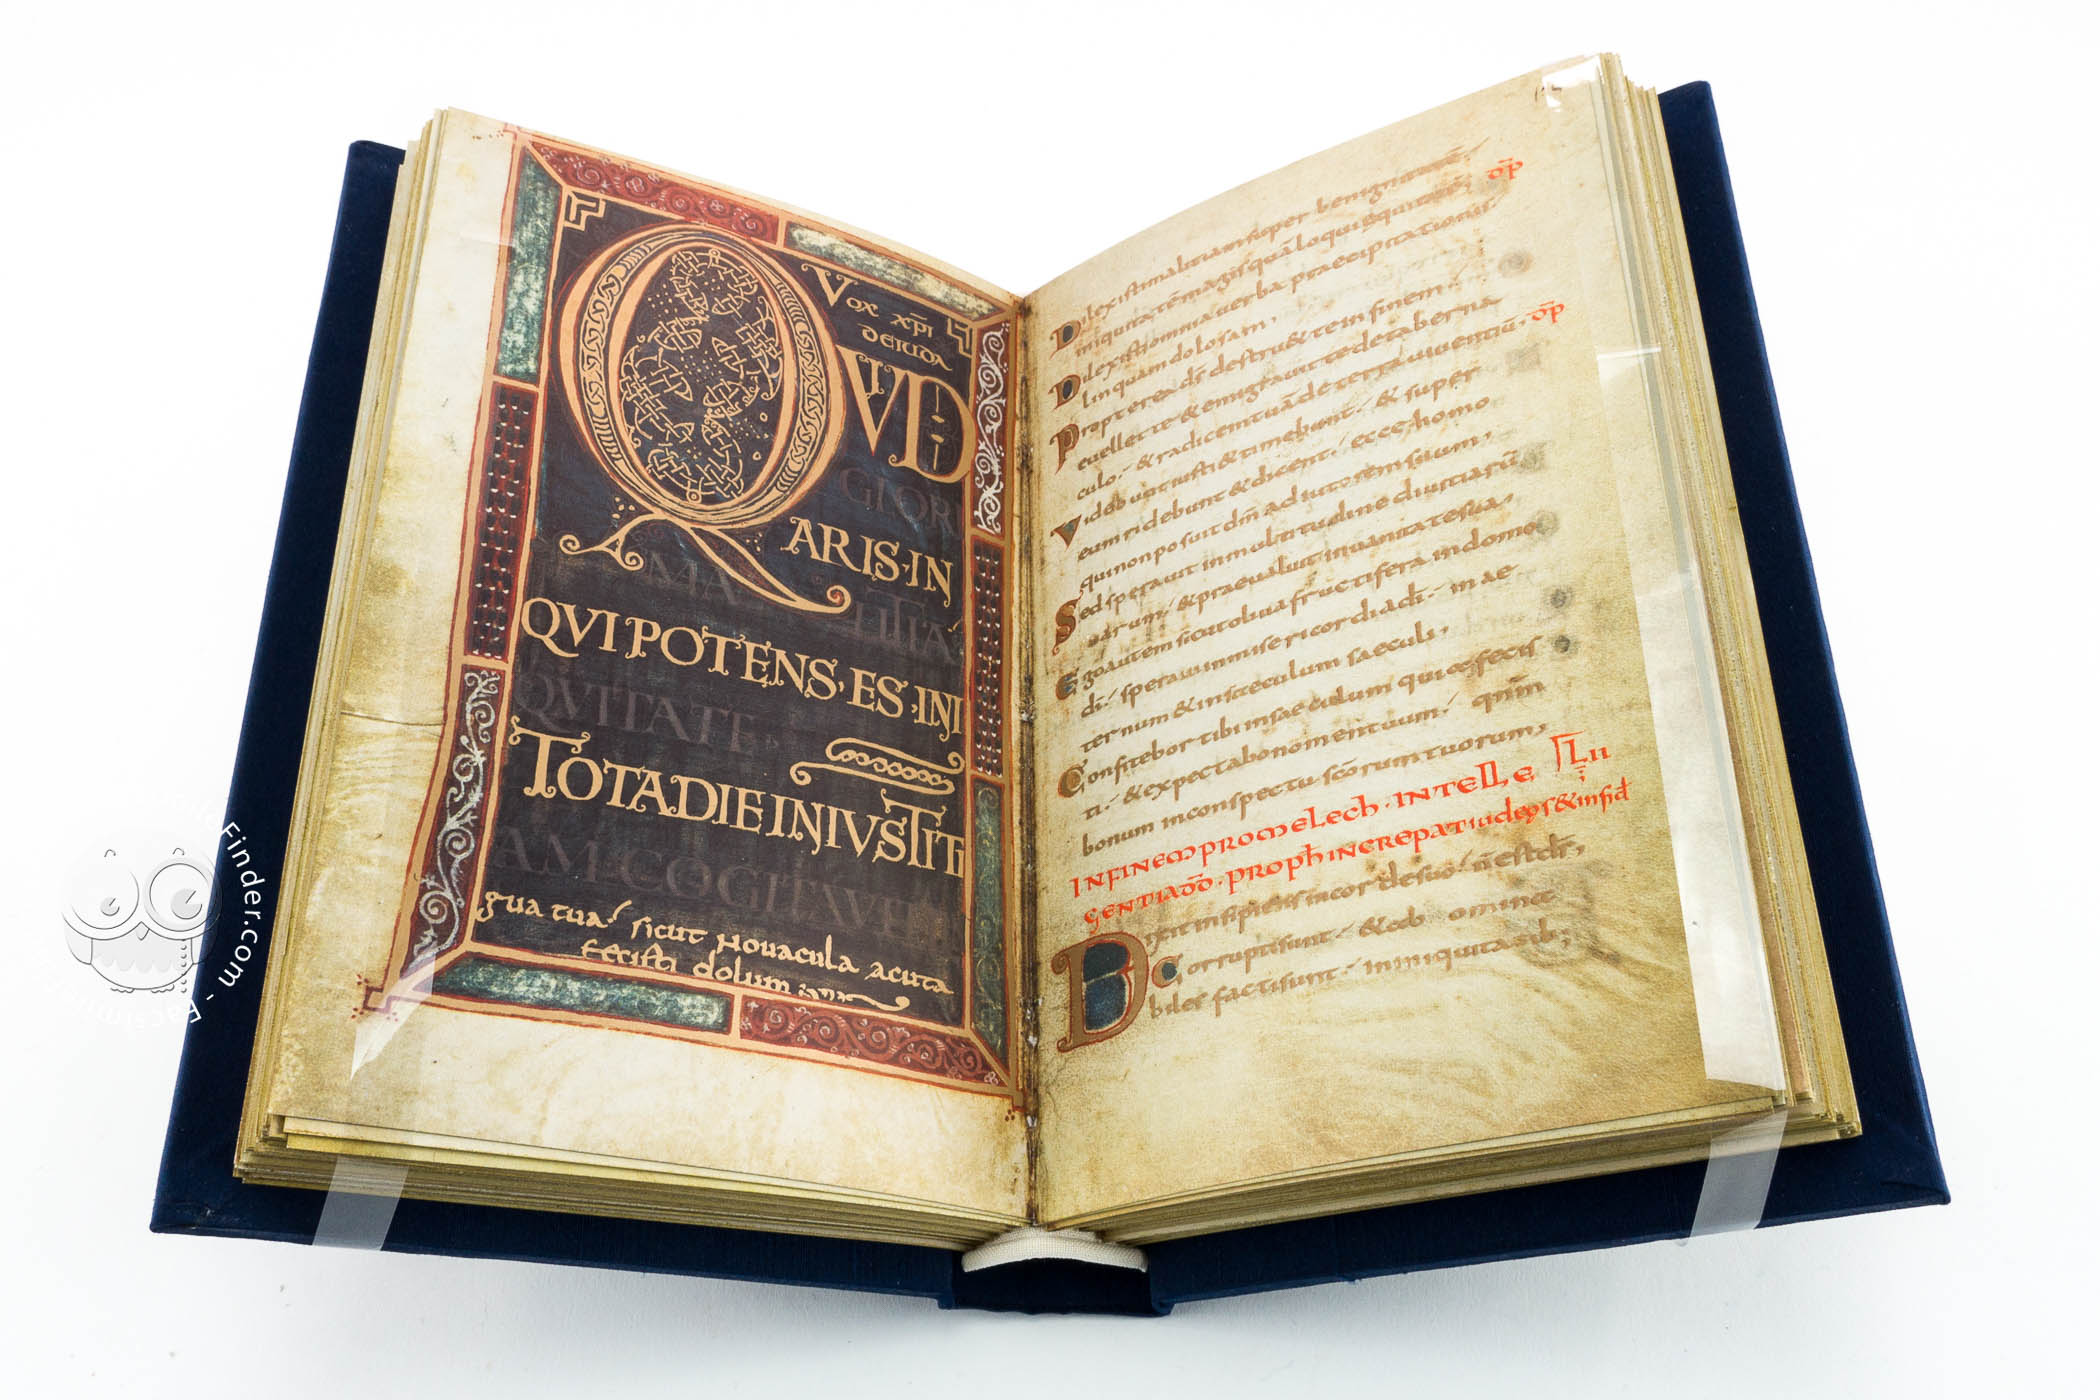 Vox xp̄i
de iuda
QVID
GLOR
ARIS·IN
MALITIA
QVI POTENS, ES, INI
QVITATE
TOTA DIE INJVSTIT
AM·COGITAVIT
gua tua· sicut nouacula acuta
fecisti dolum
Dilexisti malitiam super benignitatē·
iniquitatē magis quā loqui equitatē· dp̄
Dilexisti omnia uerba praecipitationis
linguam dolosam,
Propterea d̄s destru& te in finem·
euell& te & emigrauit te de taberna
culo·& radicem tuā de terra uiuentiū· dp̄
Videbunt iusti & timebunt·& super
eum ridebunt & dicent· ecce homo
qui non posuit dm̄ adiutorem suum,
Sed sperauit in multitudine diuitiarū
suarum·& praeualuit in uanitate sua,
Ego autem sicut oliua fructifera in domo
di·sperauimisericordia di· in ae
ternum & in saeculum saeculi,
Confitebor tibi in saeculum qui fecis
ti·& expectabo nomen tuum· qnm̄
bonum in conspectu sc̄orum tuorum,
IN FINEM PRO MELECH·INTELLE LII
GENTIA DD· PROPH INCREPAT IUDEOS & INFID
Dixit insipiens in corde suo· n̄ est ds̄,
Corrupti sunt·& ab omina
biles facti sunt· in iniquitatib;
Finder.com - Facsimi